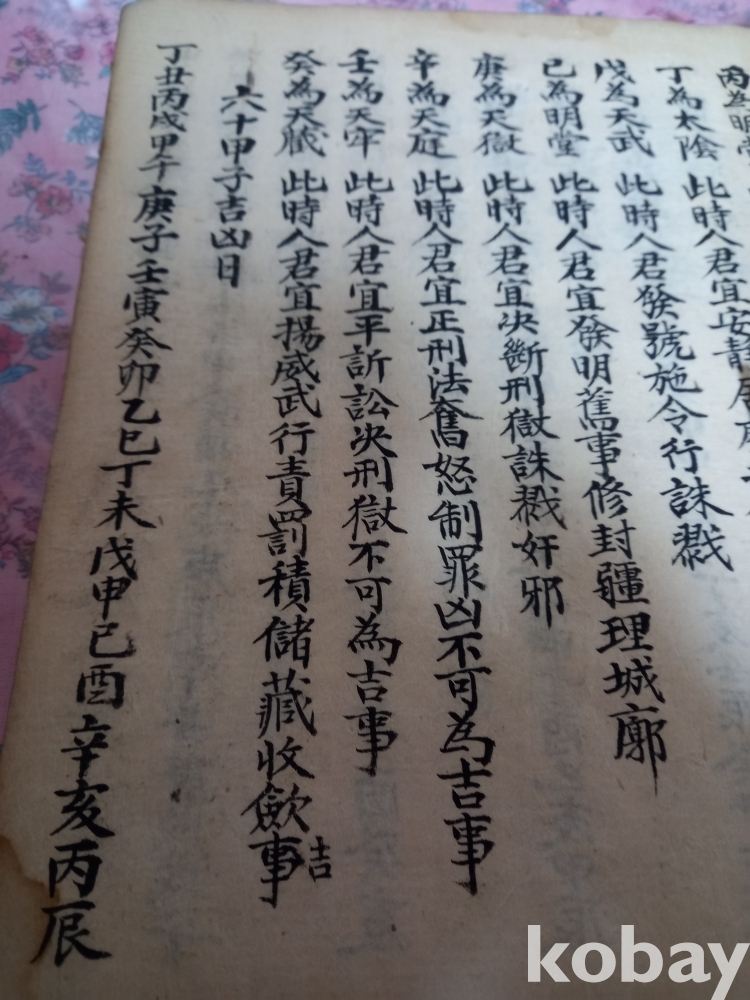 丙為明堂
丁為太陰 此時人君宜安靜居
戊為天武 此時人君發號施令行誅戮
己為明堂 此時人君宜發明舊事修封疆理城廓
庚為天獄 此時人君宜決斷刑獄誅戮奸邪
辛為天庭 此時人君宜正刑法奮怒制罪凶不可為吉事
壬為天牢 此時人君宜平訴訟决刑獄不可為吉事
癸為天藏 此時人君宜揚威武行責罰積儲藏收歛事吉
六十甲子吉凶日
丁丑丙戌甲午庚子壬寅癸卯乙巳丁未戊申己酉辛亥丙辰
kobay